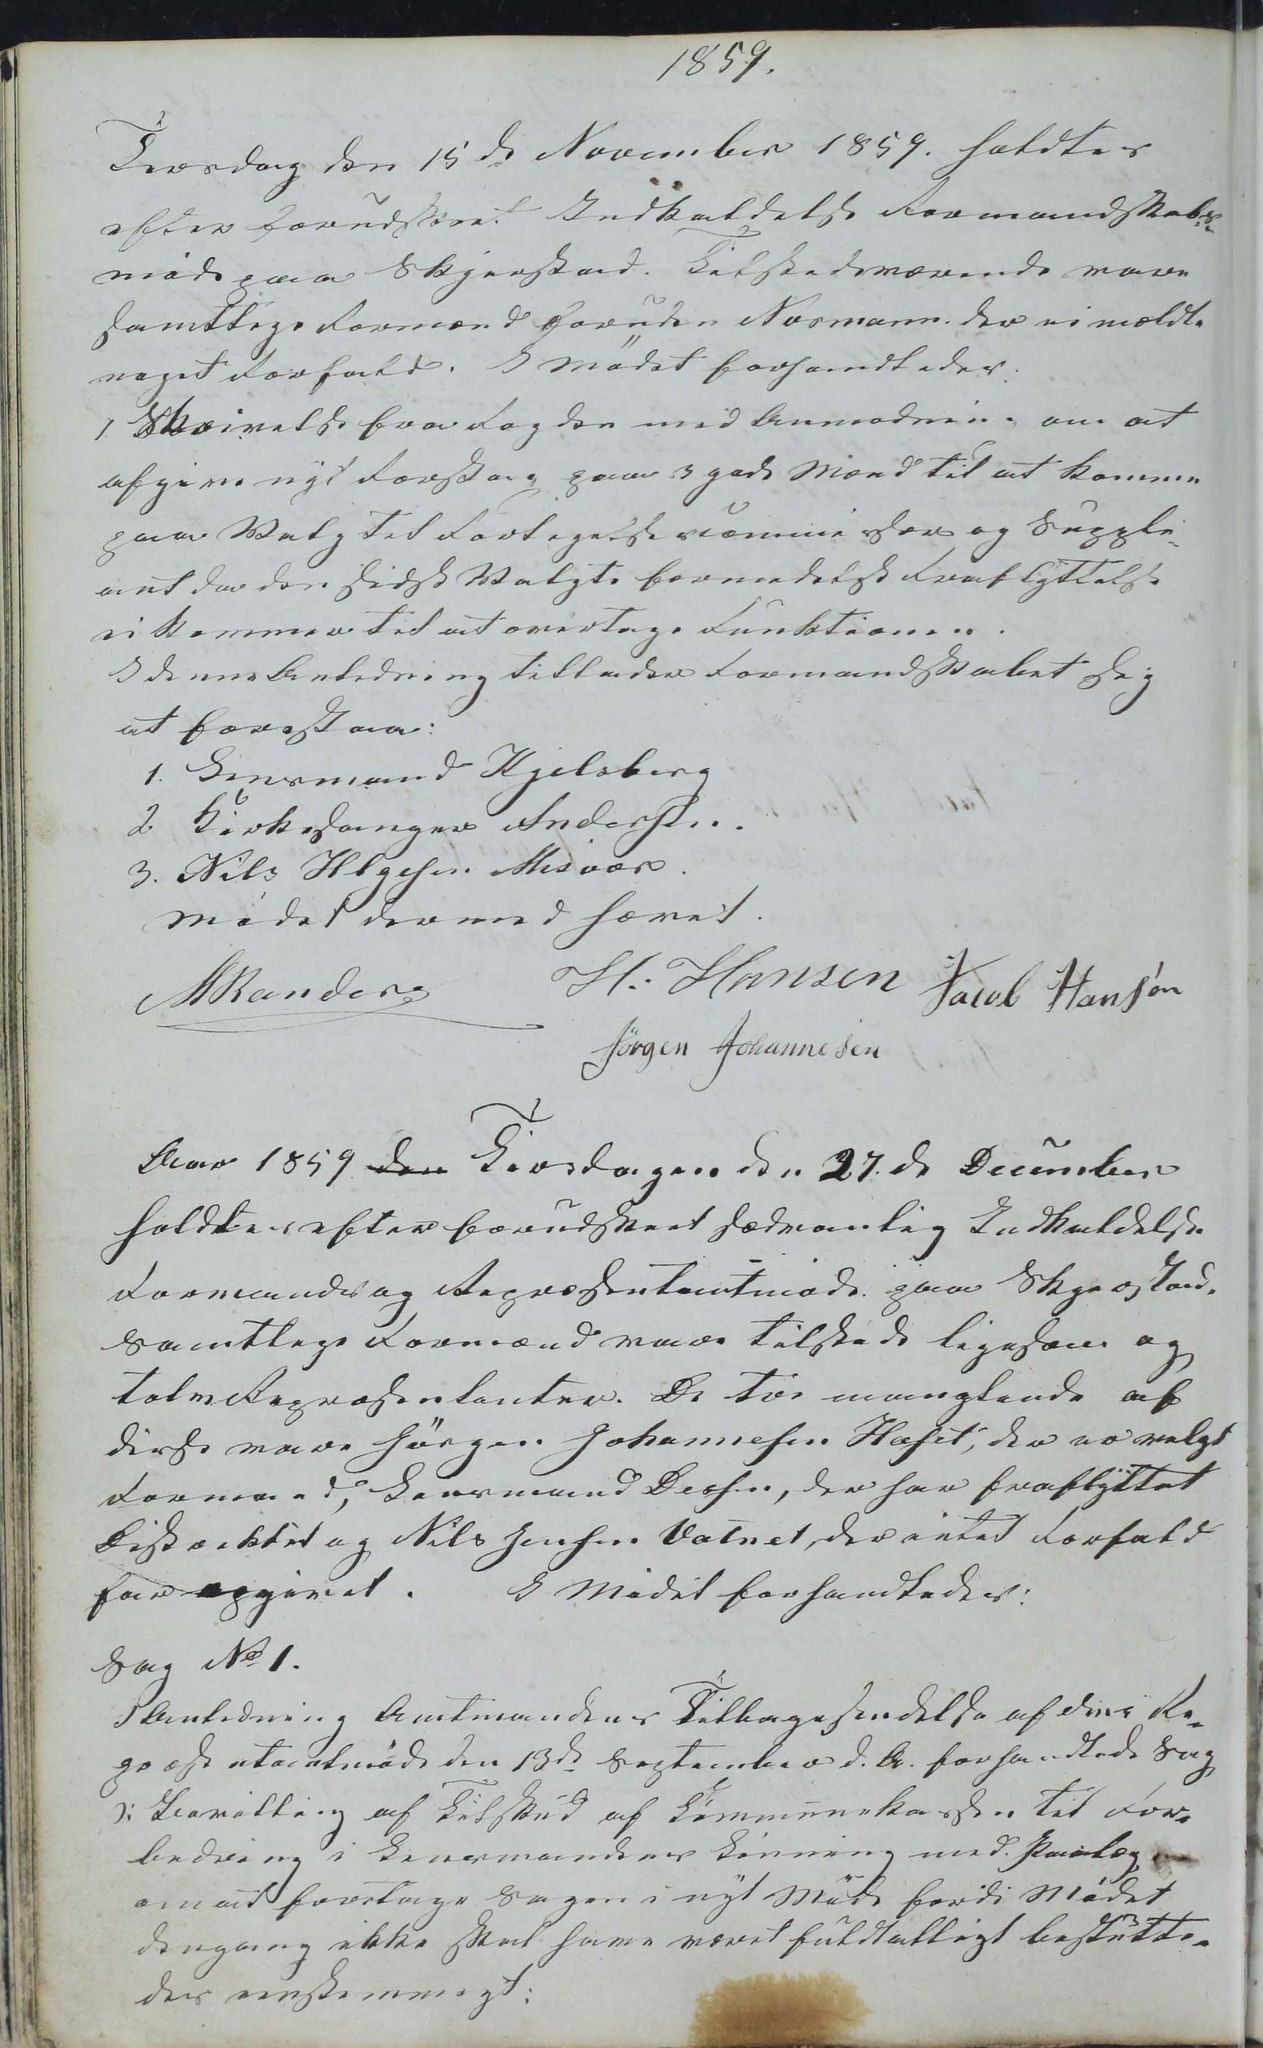 1859.
Tirsdag den 15de November 1859. holdtes
efter forudskeet Indkaldelse Formandskabs-
møde paa Skjerstad. Tilstedeværende vare
samtlige Formænd foruden Normann der ei meldte
noget Forfald. I Mødet forhandledes:
1. Skrivelse fra Fogden med Anmodning om at
afgive nyt Forslag paa 3 gode Mænd til at komme
paa Valg til Forligelsescommissær og Supple-
ant da den sidst Valgte formedelst Fraflyttelse
ei kommer til at overtage Funktionen.
I denne Anledning tillader Formandskabet sig
at foreslaa:
1. Lensmand Kjelsberg
2 Kirkesanger Andersen.
3. Nils Helgesen Misvær.
Mødet dermed hævet.
MRanders H. Hansen Jacob Hansøn
Jørgen Johannesen
Aar 1859 den Tirsdagen den 27.de December
holdtes efter forudskeet sædvanlig Indkaldelse
Formands og Repræsentantmøde paa Skjerstad.
Samtlige Formænd vare tilstede ligesom og
tolv Repræsentanter. De tre manglende af
disse vare Jørgen Johannesen Høset, der er valgt
Formand, Lensmand Dessen, der har fraflyttet
Distriktet og Nils Jensen Vatnet, der intet Forfald
har opgivet. I Mødet forhandledes:
Sag No 1.
I Anledning Amtmandens Tilbagesendelse af den i Re-
præsentantmøde den 13de September d. A. forhandlede Sag
: Bevilling af Tilskud af Communekassen til For-
bedring i Lensmandens Lønning med Paalæg
om at foretage Sagen i nyt Møde fordi Mødet
dengang ikke skal have været fuldtalligt beslutte-
des eenstemmigt: